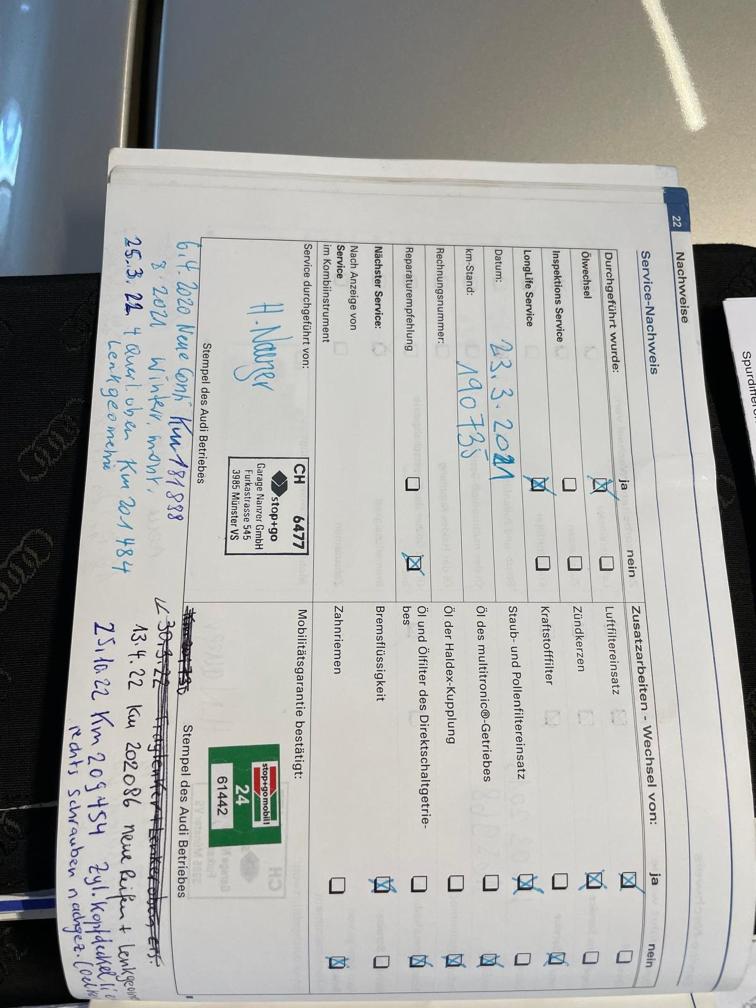 22
Nachweise
Service-Nachweis
Durchgeführt wurde: ja nein
Ölwechsel
Inspektions Service
LongLife Service
Datum: 23.3.2021
km-Stand: 190735
Rechnungsnummer:
Reparaturempfehlung
Nächster Service:
Nach Anzeige von
Service
im Kombiinstrument
Service durchgeführt von:
H. Nanzer
CH 6477
stop+go
Garage Nanzer GmbH
Furkastrasse 545
3985 Münster VS
Stempel des Audi Betriebes
6.4.2020 Neue Conti Km 181898
8.2021 Winterr. mont.
25.3.22 4 Querl. oben Km 201484
Lenkgeometrie
Zusatzarbeiten - Wechsel von: ja nein
Luftfiltereinsatz
Zündkerzen
Kraftstofffilter
Staub- und Pollenfiltereinsatz
Öl des multitronic®-Getriebes
Öl der Haldex-Kupplung
Öl und Ölfilter des Direktschaltgetrie-
bes
Bremsflüssigkeit
Zahnriemen
Mobilitätsgarantie bestätigt:
stop+go mobil!
24
61442
Stempel des Audi Betriebes
13.4.22 Km 202086 neue Reifen + Lenkgeom
25.10.22 Km 209454 Zyl. Kopfdeckel li
rechts Schrauben nachgez.
Spurdiffer